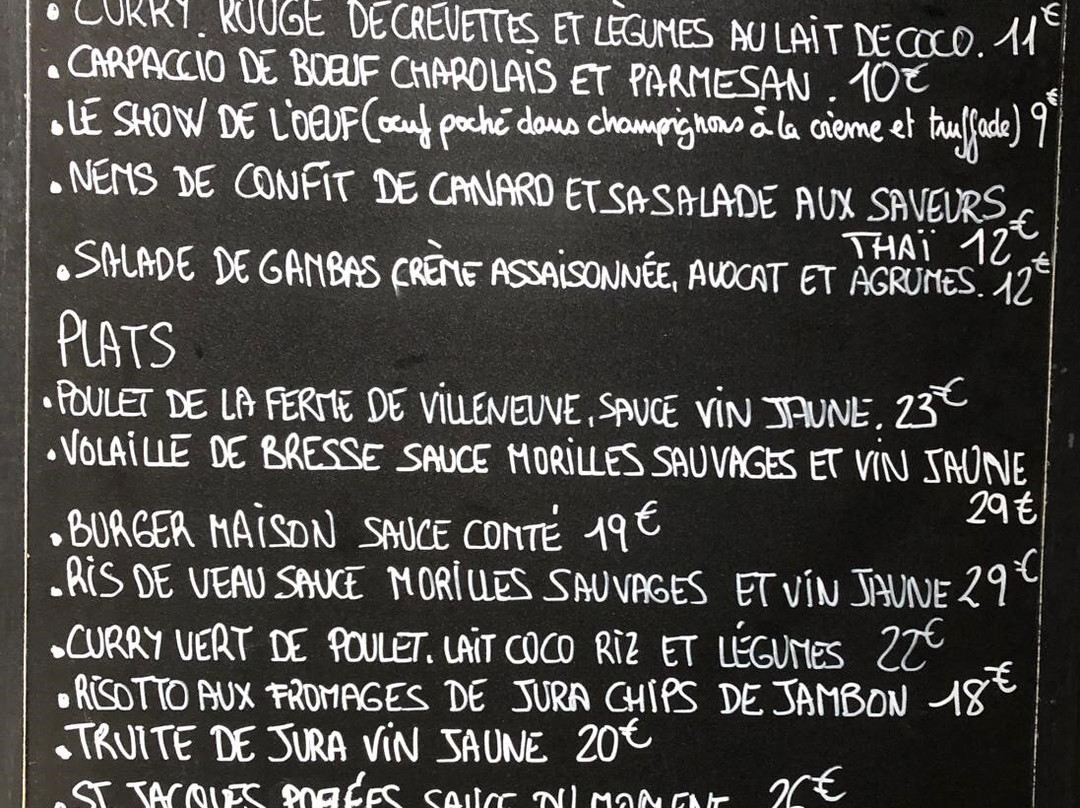 • CURRY. ROUGE DE CREVETTES ET LÉGUMES AU LAIT DE COCO. 11€
• CARPACCIO DE BOEUF CHAROLAIS ET PARMESAN. 10€
• LE SHOW DE L'OEUF (oeuf poché dans champignons à la crème et truffade) 9€
• NEMS DE CONFIT DE CANARD ET SA SALADE AUX SAVEURS
THAÏ 12€
• SALADE DE GAMBAS CRÈME ASSAISONNÉE, AVOCAT ET AGRUMES. 12€
PLATS
• POULET DE LA FERME DE VILLENEUVE, SAUCE VIN JAUNE. 23€
• VOLAILLE DE BRESSE SAUCE MORILLES SAUVAGES ET VIN JAUNE
29€
• BURGER MAISON SAUCE COMTÉ 19€
• RIS DE VEAU SAUCE MORILLES SAUVAGES ET VIN JAUNE 29€
• CURRY VERT DE POULET. LAIT COCO RIZ ET LÉGUMES 22€
• RISOTTO AUX FROMAGES DE JURA CHIPS DE JAMBON 18€
• TRUITE DE JURA VIN JAUNE 20€
• ST JACQUES POÊLÉES SAUCE DU MOMENT